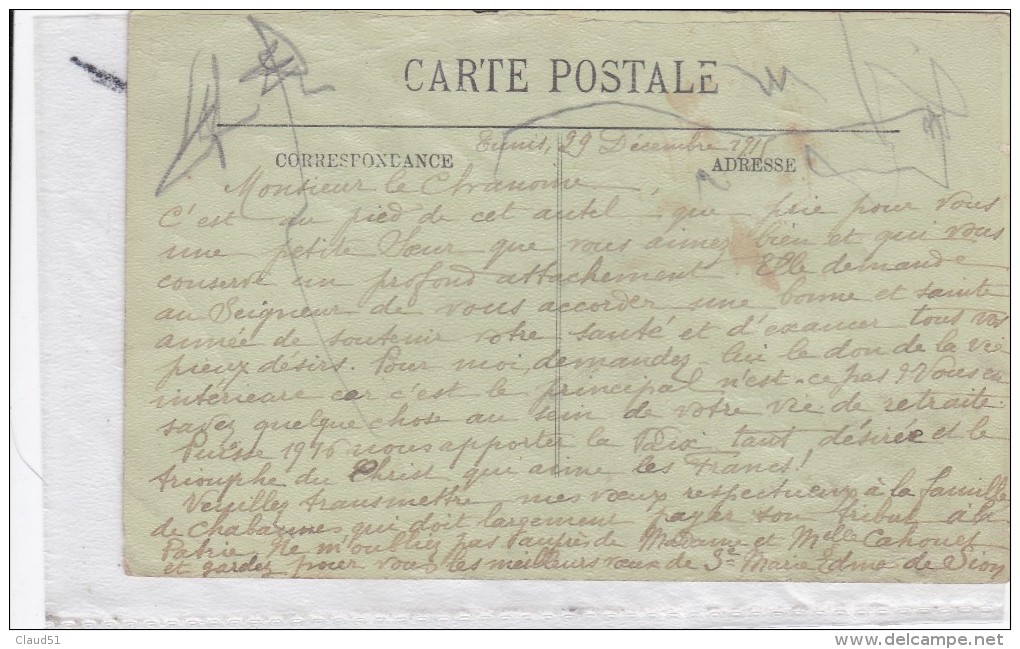 CARTE POSTALE
CORRESPONDANCE
ADRESSE
Tunis, 29 Décembre 1915
Monsieur le Chanoine,
C'est au pied de cet autel que prie pour vous
une petite Sœur que vous aimez bien et qui vous
conserve un profond attachement Elle demande
au Seigneur de vous accorder une bonne et sainte
année de soutenir votre santé et d'exaucer tous vos
pieux désirs. Pour moi, demandez-lui le don de la vie
intérieure car c'est le principal n'est-ce pas? Vous en
savez quelque chose au sein de votre vie de retraite.
Puisse 1916 nous apporter la Paix tant désirée et le
triomphe du Christ qui aime les Francs!
Veuillez transmettre mes vœux respectueux à la famille
de Chabannes qui doit largement payer son tribut à la
Patrie. Ne m'oubliez pas auprès de Madame et Melle Cahouet
et gardez pour vous les meilleurs vœux de Sr Marie Edme de Sion
Claud51
www.delcampe.net